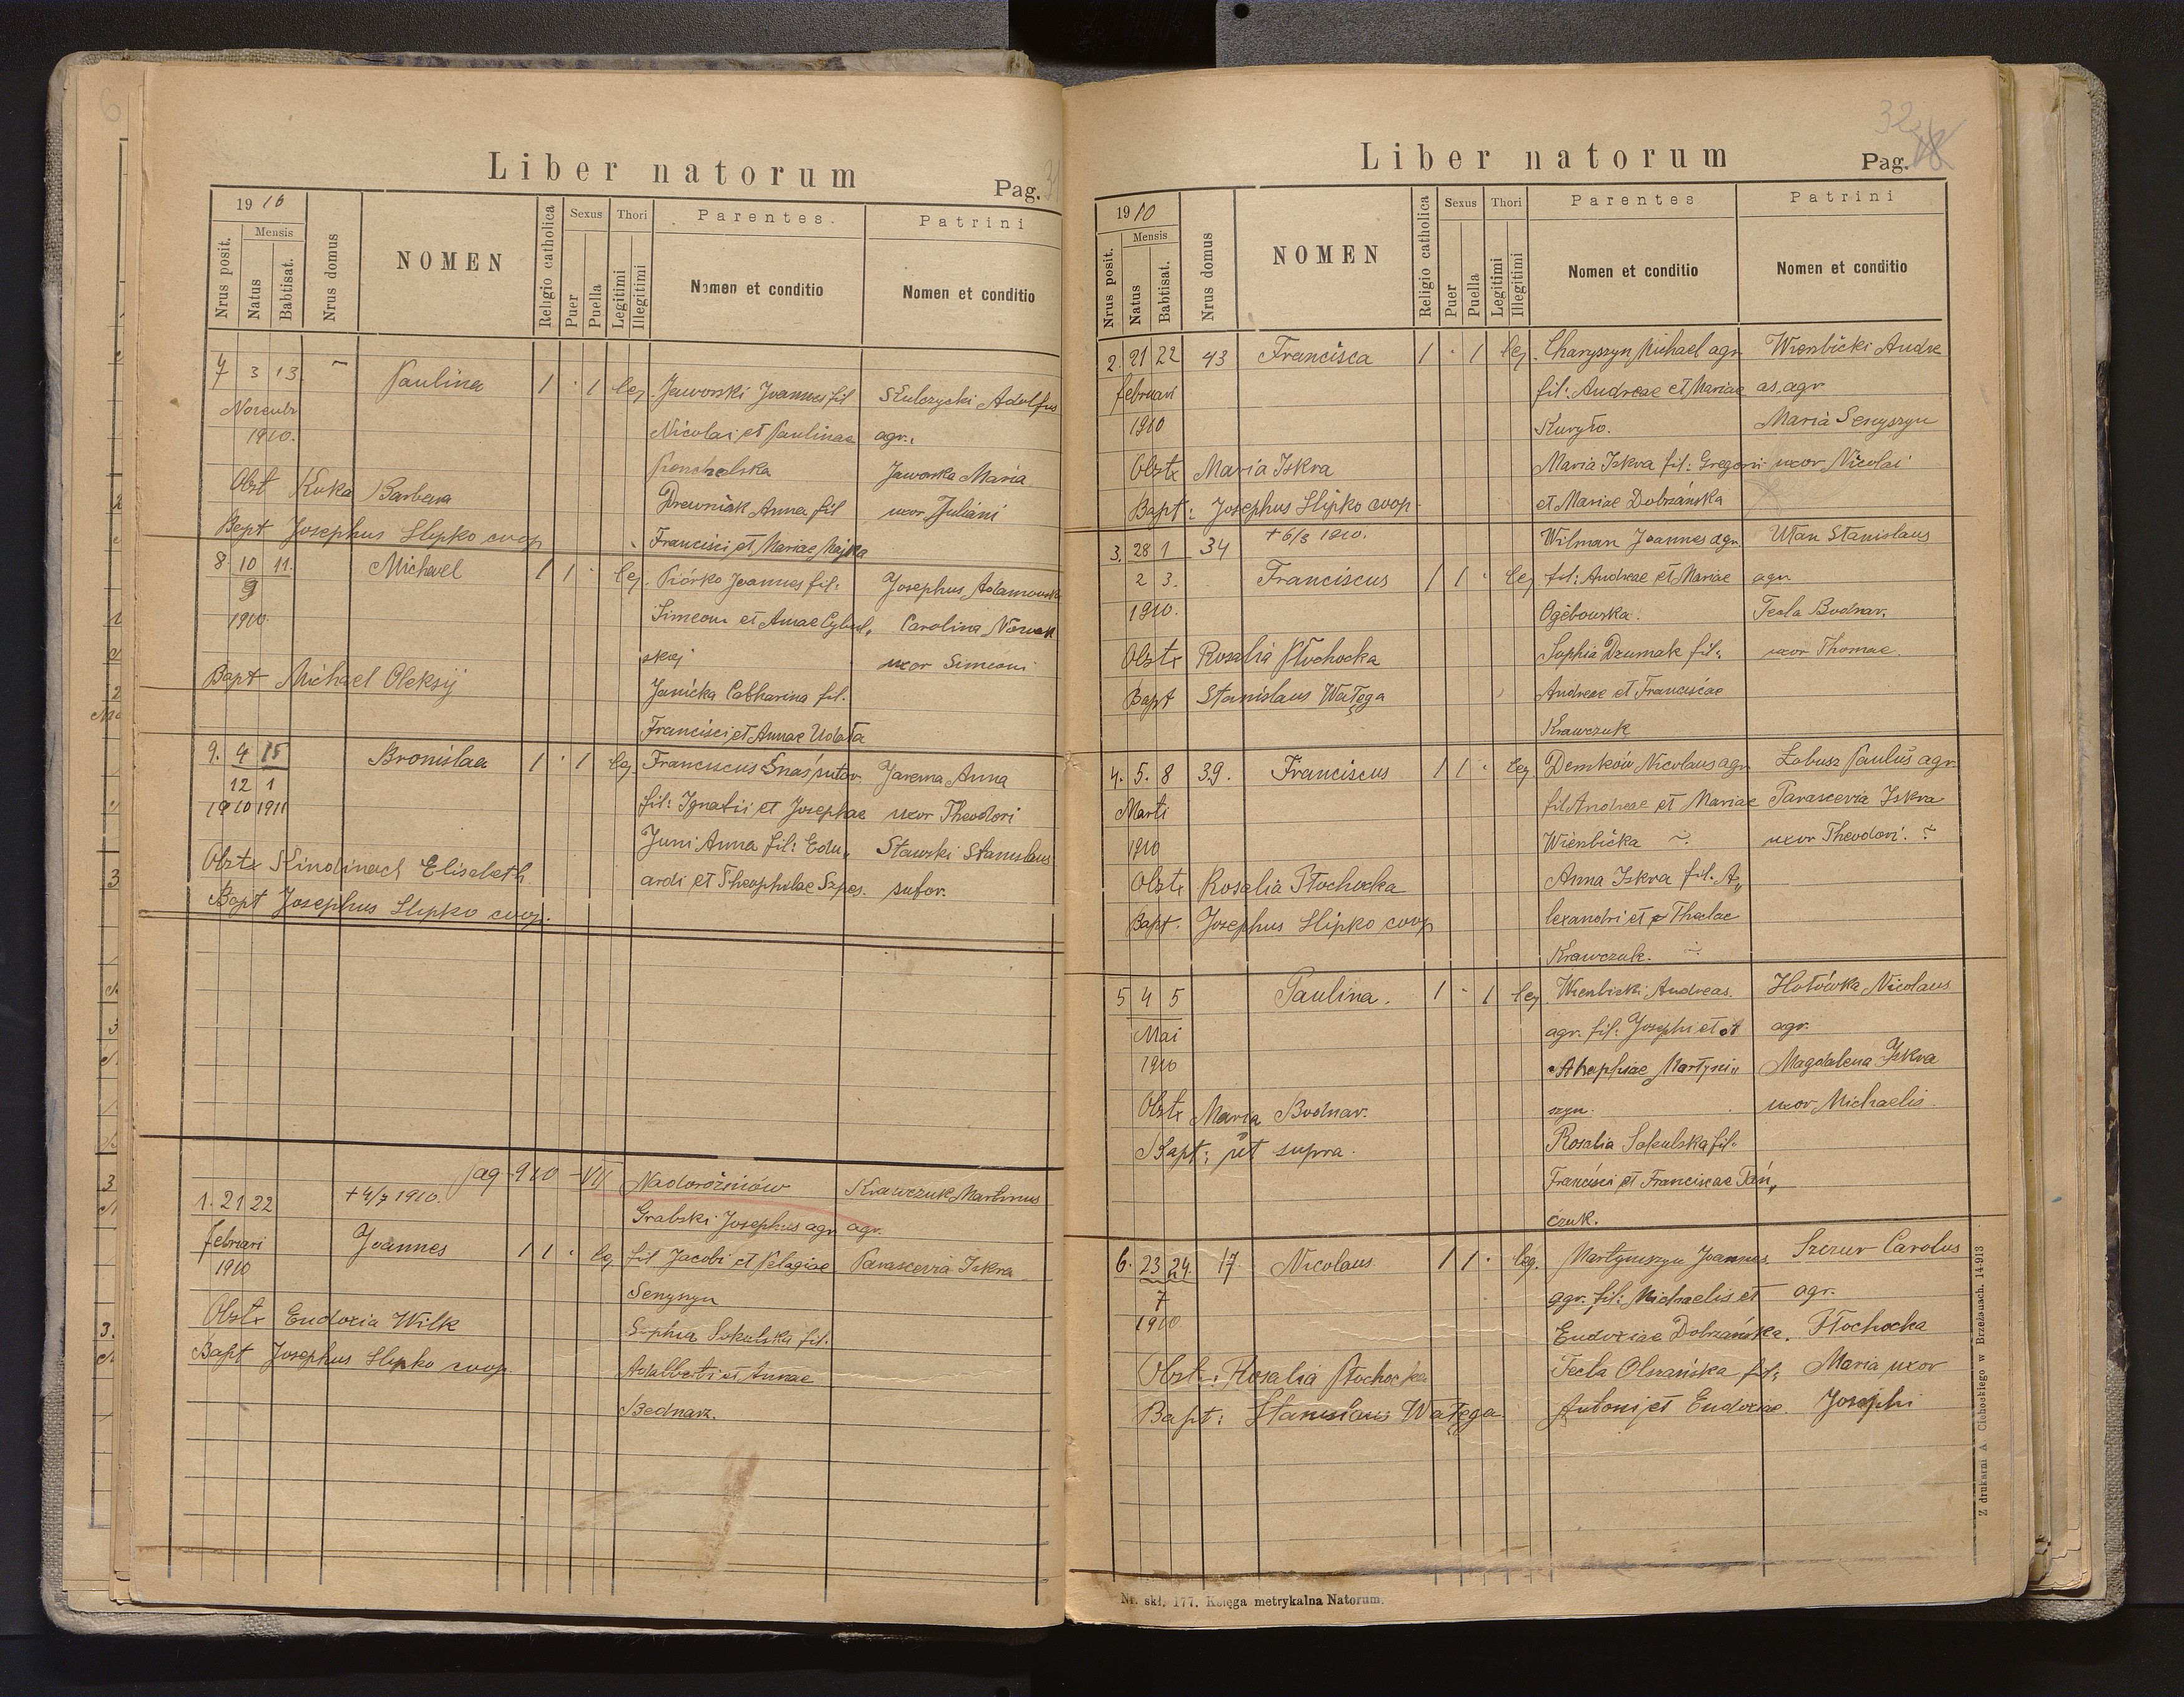 Liber natorum
Pag.
1910
Nrus posit.
Mensis
Natus
Babtisat.
Nrus domus
NOMEN
Religio catholica
Sexus
Puer
Puella
Thori
Legitimi
Illegitimi
Parentes.
Nomen et conditio
Patrini
Nomen et conditio
7 3 13 – Paulina 1 · 1 leg. Jaworski Joannes fil Adolfus
1910. Nicolai et Paulinae agr.
Jaworska Maria
Obst Kuka Barbara Drewniak Anna fil uxor Juliani
Bapt Josephus Slipko coop Francisci et Mariae Majka
8 10 11. Michael 1 1 · leg. Piórko Joannes fil: Josephus
9 Simeoni et Annae Cybul„ Carolina Nowak
1910. skaj uxor Simeoni
Bapt Michael Oleksij Janicka Catharina fil.
Francisci et Annae
9. 4 15 Bronislaa 1 · 1 leg. Franciscus sutor Jarema Anna
12 1 fil: Ignatii et Josephae uxor Theodori
1910 1911 Juni Anna fil: Edu„ Stawski Stanislaus
Obstx Elisabeth ardi et Theophilae Szpes. sutor.
Bapt Josephus Slipko coop.
pag 910 – VII Nadorożniów Krawczuk Martinus
1. 21 22 + 4/7 1910. Grabski Josephus agr agr.
februari Joannes 1 1 · leg fil Jacobi et Pelagiae Parascevia Iskra
1910 Senyszyn
Obstx Eudoxia Wilk Sophia Sokulska fil.
Bapt Josephus Slipko coop Adalberti et Annae
Bednarz.
Liber natorum
Pag. 18
32
1910
Nrus posit.
Mensis
Natus
Babtisat.
Nrus domus
NOMEN
Religio catholica
Sexus
Puer
Puella
Thori
Legitimi
Illegitimi
Parentes
Nomen et conditio
Patrini
Nomen et conditio
2. 21 22 43 Francisca 1 · 1 leg. Charyszyn Michael agr. Wierzbicki Andre
februari fil: Andreae et Mariae as, agr
1910 Kuryło. Maria Senyszyn
Obstx Maria Iskra Maria Iskra fil: Gregorii uxor Nicolai
Bapt: Josephus Slipko coop. et Mariae Dobrzańska
3. 28 1 34 + 6/3 1910. Wilman Joannes agr. Utan Stanislaus
2 3. Franciscus 1 1 · leg fil: Andreae et Mariae agr.
1910. Ogębowska. Tecla Bodnar.
Obstx Rosalia Płochocka Sophia Dzumak fil: uxor Thomae.
Bapt Stanislaus Watęga Andreae et Franciscae
Krawczuk
4. 5. 8 39. Franciscus 1 1 · leg Demków Nicolaus agr Łobusz Paulus agr
Marti fil Andreae et Mariae Parascevia Iskra
1910 Wierzbicka uxor Theodori.
Obstx Rosalia Płochocka Anna Iskra fil. A„
Bapt. Josephus Slipko coop lexandri et Theclae
Krawczuk.
5 4 5 Paulina. 1 · 1 leg. Wierzbicki Andreas. Hołówka Nicolaus
Mai agr. fil: Josephi et agr.
1910 Martyni„ Magdalena Iskra
Obstx Maria Bodnar. szyn. uxor Michaelis.
Bapt: ut supra. Rosalia Sokulska fil.
Francisci et Franciscae Pań„
czuk.
6. 23 24. 17. Nicolaus 1 1 · leg. Martyniszyn Joannes. Szczur Carolus
7 agr. fil: Michaelis et agr.
1910. Eudoxiae Dobrzańska. Płochocka
Obst: Rosalia Płochocka Tecla Olszańska fil: Maria uxor
Bapt: Stanislaus Watęga. Antoni et Eudoxiae. Josephi
Nr. skł. 177. Księga metrykalna Natorum.
Z drukarni A. Cichockiego w Brzeżanach. 14.913